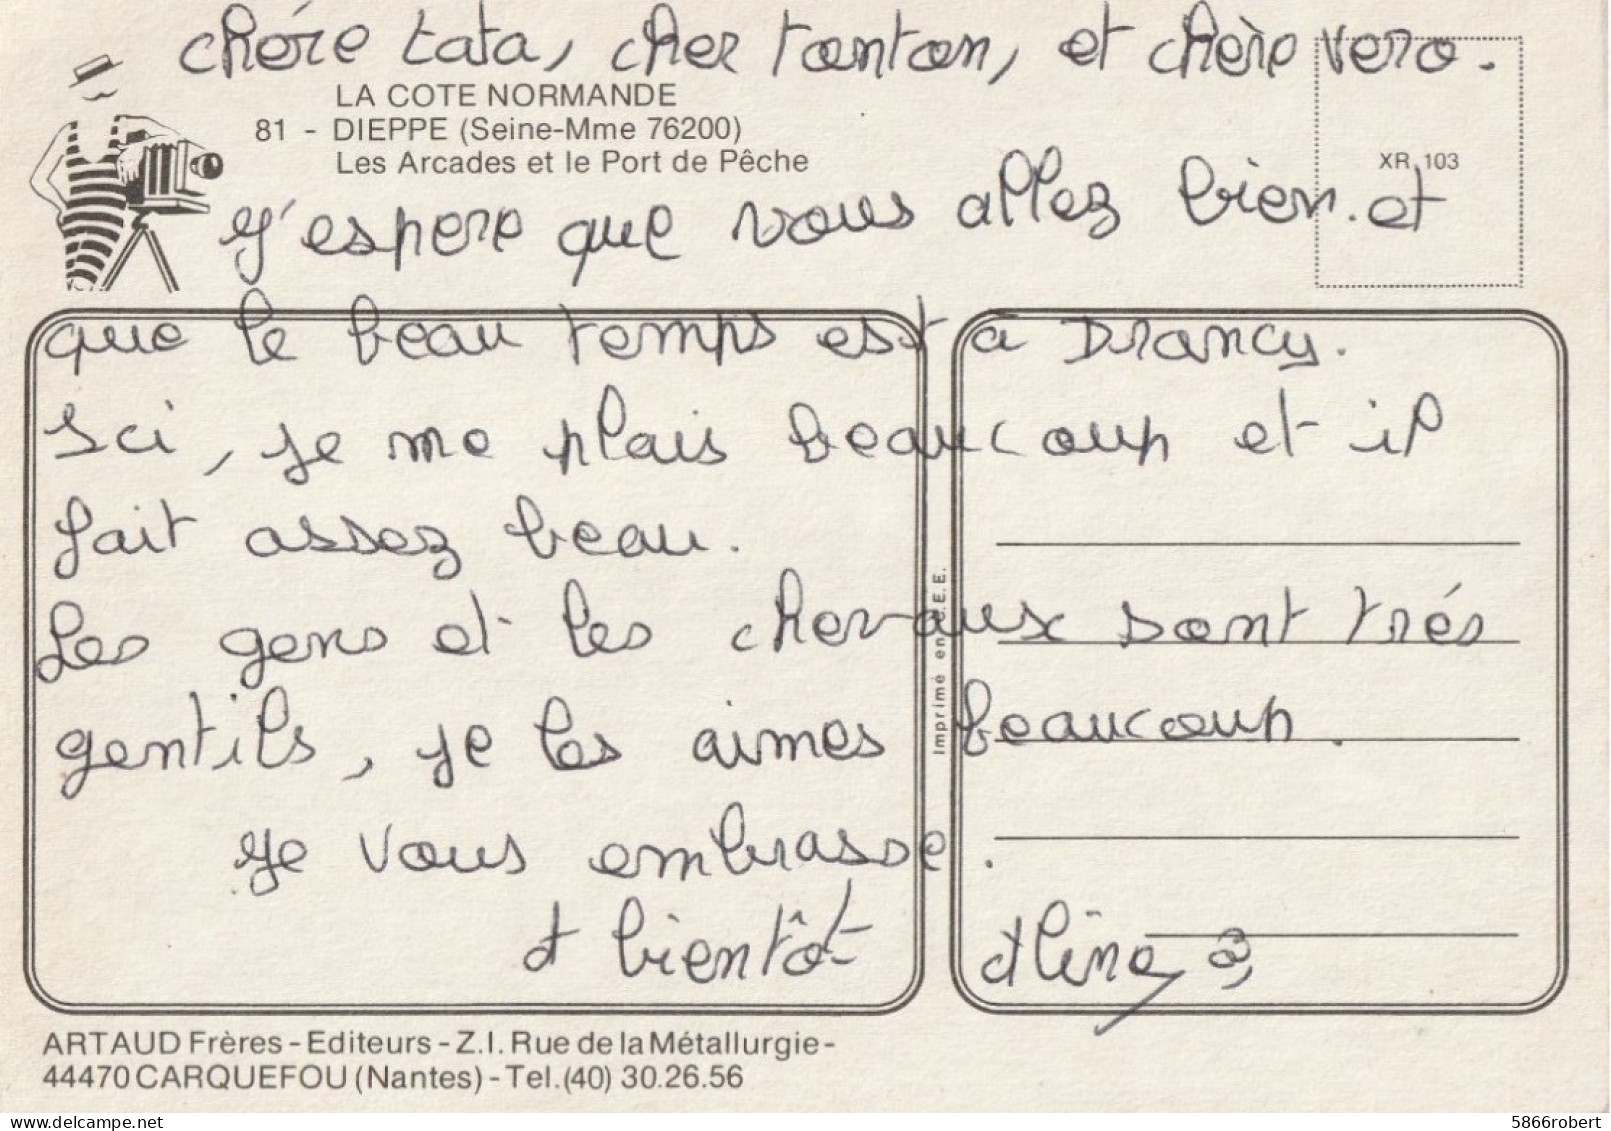 chére tata, cher tonton, et chère vero.
LA COTE NORMANDE
81 - DIEPPE (Seine-Mme 76200)
Les Arcades et le Port de Pêche
XR 103
J'espere que vous allez bien. et
que le beau temps est à Drancy.
Ici, je me plais beaucoup et il
fait assez beau.
Les gens et les chevaux sont trés
gentils, je les aimes beaucoup.
Je vous embrasse.
A bientôt Aline
Imprimé en C.E.E.
ARTAUD Frères - Editeurs - Z.I. Rue de la Métallurgie -
44470 CARQUEFOU (Nantes) - Tel. (40) 30.26.56
5866robert